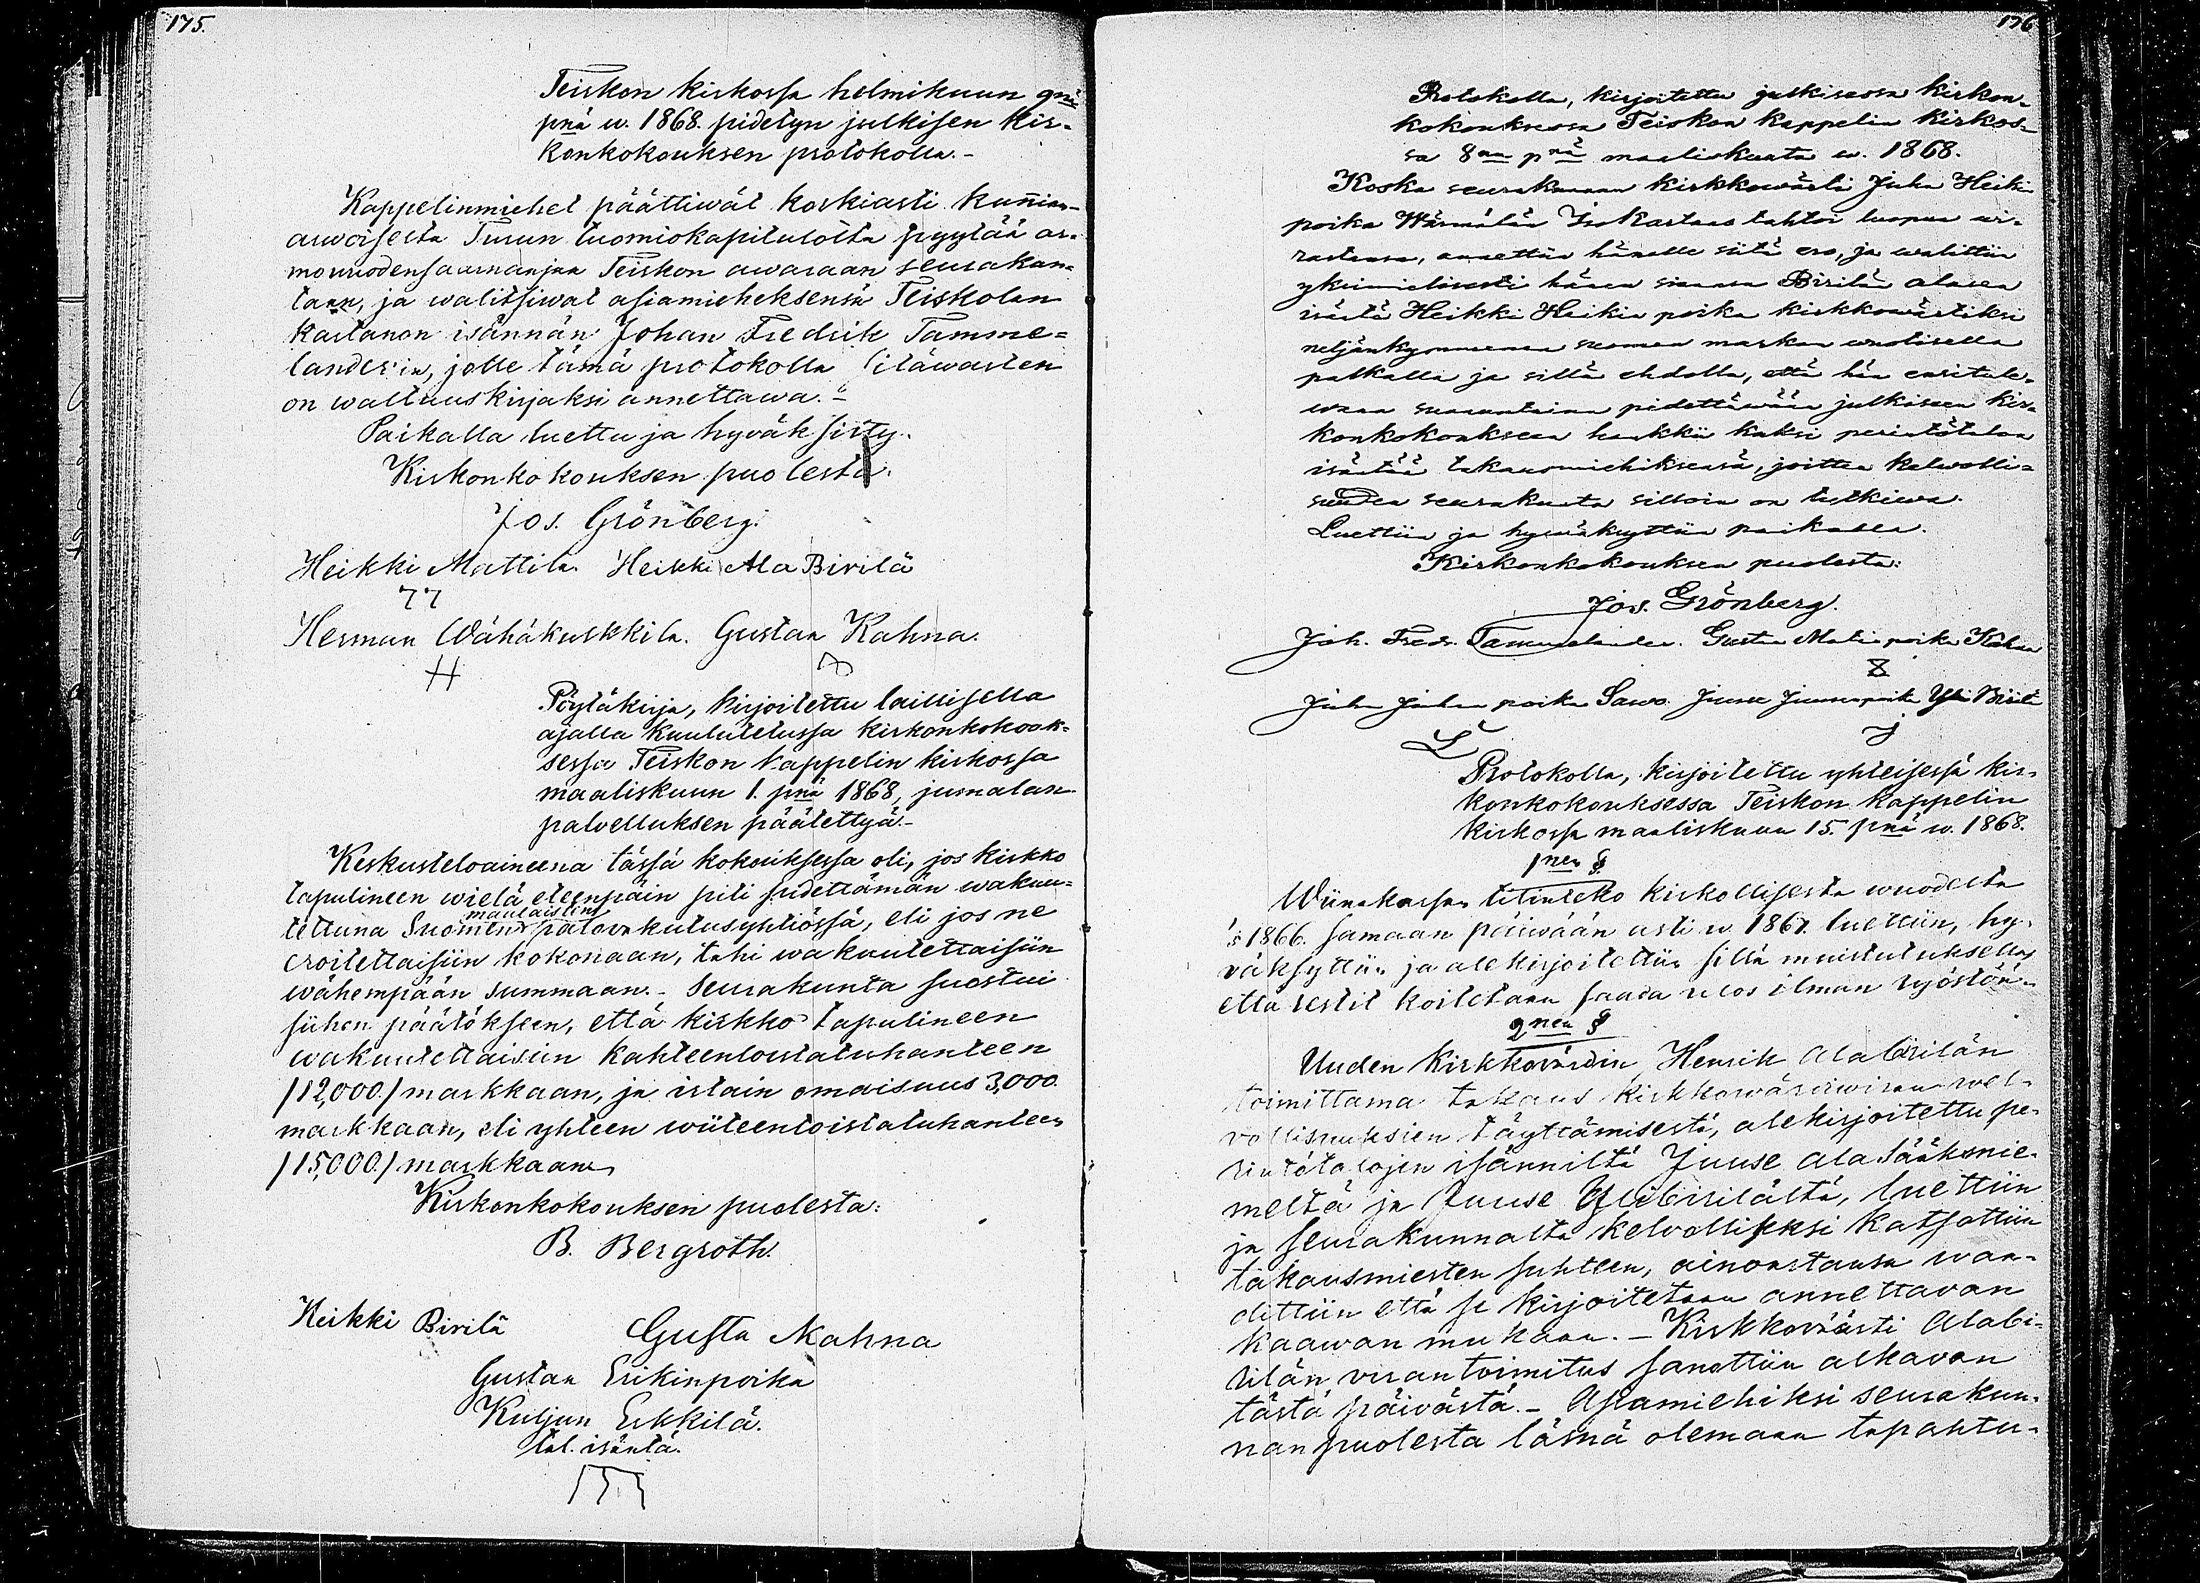 175.
Teiskon kirkossa helmikuun 9nä
pnä w. 1868. pidetyn julkisen kir-
konkokouksen protokolla.-
Kappelinmiehet päättiwät korkiasti kunnian-
arwoiselta Turun tuomiokapitulolta pyytää ar-
mowuodensaarnaajaa Teiskon awaraan seurakun-
taan, ja walitsiwat asiamieheksensä Teiskolan
kartanon isännän Johan Fredrik Tamme-
lander'in, jolle tämä protokolla sitäwarten
on waltuuskirjaksi annettawa.-
Paikalla luettu ja hyväksitty.
Kirkonkokouksen puolesta:
Jos. Grönberg.
Heikki Mattila. Heikki Ala Birilä
Herman Wähäkurkkila. Gustaa Kahna.
Pöytäkirja, kirjoitettu laillisella
ajalla kuulutetussa kirkonkokouk-
sessa Teiskon kappelin kirkossa
maaliskuun 1. pnä 1868, jumalan
palvelluksen päätettyä.-
Keskusteloaineena tässä kokouksessa oli, jos kirkko
tapulineen wielä eteenpäin piti pidettämän wakuu-
maalaisten
tettuna Suomen palovakutusyhtiössä, eli jos ne
eroitettaisiin kokonaan, tahi wakuutettaisiin
wähempään summaan.- Seurakunta suostui
siihen päätökseen, että kirkko tapulineen
wakuutettaisiin kahteentoistatuhanteen
/12,000./ markkaan, ja irtain omaisuus 3,000.
markkaan, eli yhteen wiiteentoistatuhanteen
/15,000./ markkaan.
Kirkonkokouksen puolesta:
B. Bergroth.
Heikki Birilä Gusta Kahna
Gustaa Erikinpoika
Kuljun Erkkilä.
tal. isäntä.
176
Protokolla, kirjoitettu julkisessa kirkon-
kokouksessa Teiskon kappelin kirkos-
sa 8na pnä maaliskuuta w. 1868.
Koska seurakunnan kirkkowärti Juha Heikin
poika Wärmälän Iso Kartano tahtoi luopua wi-
rastansa, annettiin hänelle siitä ero, ja walittiin
yksimielisesti hänen siaansa Birilän alasen
isäntä Heikki Heikin poika kirkkowärtiksi
neljänkymmenen suomen markan wuotisella
palkalla ja sillä ehdolla, että hän ensitule-
wana sunnuntaina pidettäwään julkiseen kir-
konkokoukseen hankkii kaksi perintötalon
isäntää takausmiehiksensä, joitten kelwolli-
suuden seurakunta silloin on tutkiwa.
Luettiin ja hywäksyttiin paikalla.
Kirkonkokouksen puolesta:
Jos. Grönberg.
Joh. Fredr. Tammelander. Gusta Matin poika Kahna
Juha Juhan poika Sawo. Juuse Juusenpoika Yli Birilä
Protokolla, kirjoitettu yhteisessä kir-
konkokouksessa Teiskon kappelin
kirkossa maaliskuun 15. pnä w. 1868.
1nen §
Wiinakassan tilinteko kirkollisesta wuodesta
1866. samaan päiwään asti w. 1867. luettiin, hy-
väksyttiin ja alekirjoitettiin sillä muistutuksella,
että restit koitetaan saada ulos ilman ryöstön.
2nen §
Uuden kirkkovärdin Henrik Alabirilän
toimittama takaus kirkkowärdinwiran wel-
vollisuuksien täyttämisestä, alekirjoitettu pe-
rintötalojen isänniltä Juuse Ala Jääksnie-
meltä ja Juuse Ylibirilältä, luettiin
ja seurakunnalta kelvolliseksi katsottiin
takausmiesten suhteen, ainoastansa waa-
dittiin että se kirjoitetaan annettavan
kaawan mukaan.- Kirkkovärti Alabi-
rilän virantoimitus sanottiin alkavan
tästä päivästä.- Asiamiehiksi seurakun-
nan puolesta läsnä olemaan tapahtu-